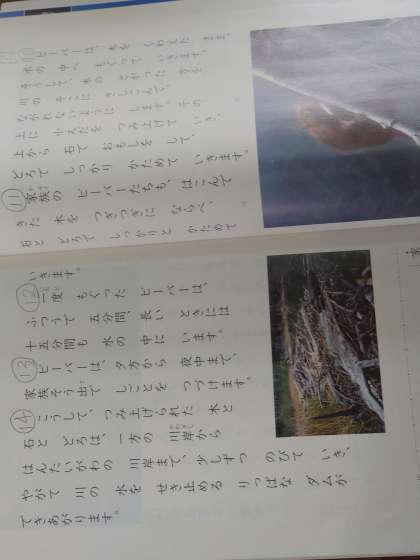 ⑩ビーバーは、木を くわえた まま、
水の 中へ もぐって いきます。
そうして、木の とがった 方を
川の そこに さしこんで、
ながれないように します。その
上に 小えだを つみ上げて いき、
上から 石で おもしを して、
どろで しっかり かためて いきます。
⑪家族の ビーバーたちも、はこんで
きた 木を つぎつぎに ならべ、
石と どろで しっかりと かためて
いきます。
⑫一度 もぐった ビーバーは、
ふつうで 五分間、長い ときには
十五分間も 水の 中に います。
⑬ビーバーは、夕方から 夜中まで、
家族そう出で しごとを つづけます。
⑭こうして、つみ上げられた 木と
石と どろは、一方の 川岸から
はんたいがわの 川岸まで、少しずつ のびて いき、
やがて 川の 水を せき止める りっぱな ダムが
できあがります。